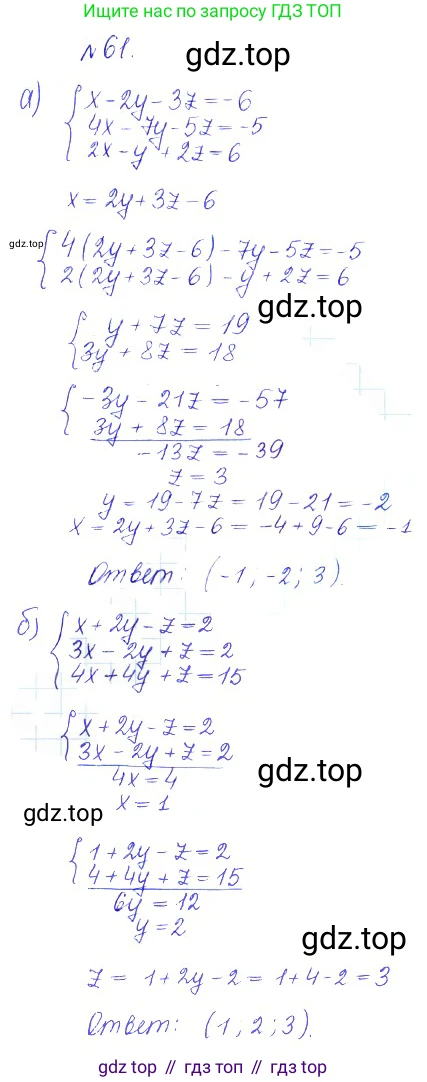 Ищите подробные решения
тут по запросу ГДЗ ТОП!
№61.
gdz.top
а) { x - 2y - 3z = -6
4x - 7y - 5z = -5
2x - y + 2z = 6
x = 2y + 3z - 6
gdz.top
{ 4(2y + 3z - 6) - 7y - 5z = -5
2(2y + 3z - 6) - y + 2z = 6
gdz.top
{ y + 7z = 19
3y + 8z = 18
{ -3y - 21z = -57
3y + 8z = 18
-13z = -39
z = 3
y = 19 - 7z = 19 - 21 = -2
x = 2y + 3z - 6 = -4 + 9 - 6 = -1
Ответ: (-1; -2; 3).
б) { x + 2y - z = 2
3x - 2y + z = 2
4x + 4y + z = 15
{ x + 2y - z = 2
3x - 2y + z = 2
gdz.top
4x = 4
x = 1
gdz.top
{ 1 + 2y - z = 2
4 + 4y + z = 15
6y = 12
y = 2
gdz.top
z = 1 + 2y - 2 = 1 + 4 - 2 = 3
Ответ: (1; 2; 3).
gdz.top // гдз топ // gdz top